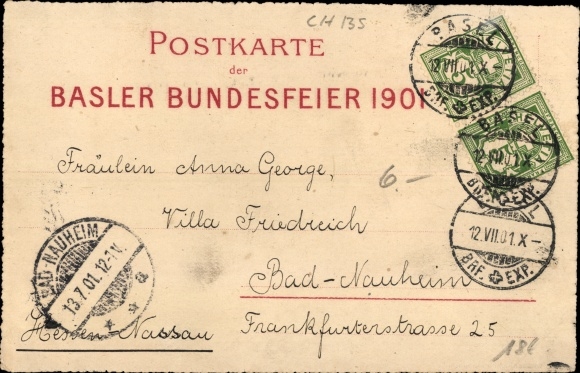 CH 135
POSTKARTE
der
BASLER BUNDESFEIER 1901
BASEL
12.VII.01.X
BRF. EXP.
BASEL
12.VII.01.X
EXP.
12.VII.01.X–
BRF. EXP.
Fräulein Anna George,
6.–
Villa Friedreich
Bad-Nauheim
Frankfurterstrasse 25
Hessen-Nassau
BAD-NAUHEIM
13.7.01.12-1N.
* * a